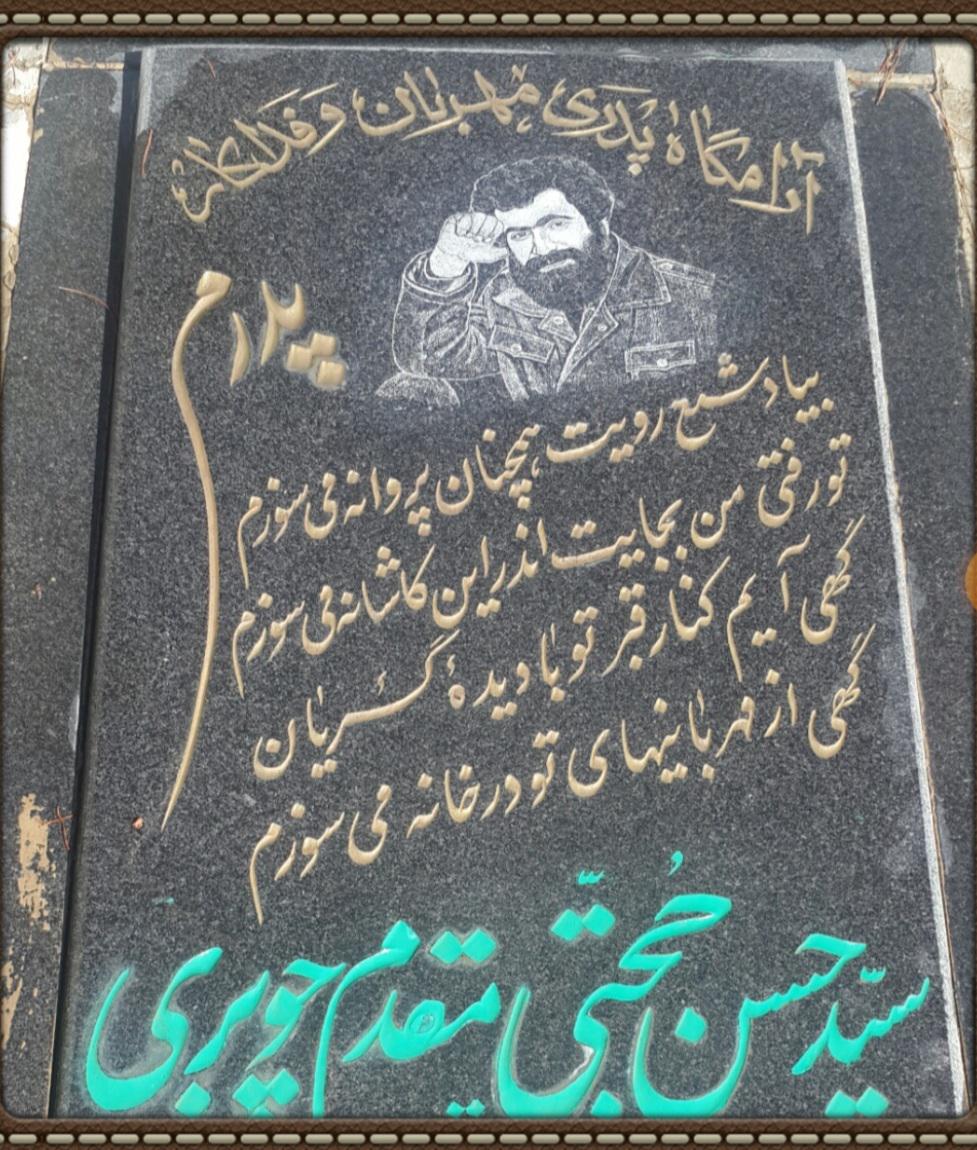 آرامگاه پدری مهربان و فداکار
پدرم
بیاد شمع رویت همچنان پروانه می سوزم
تو رفتی من بجایت اندر این کاشانه می سوزم
گهی آیم کنار قبر تو با دیدهٔ گریان
گهی از مهربانیهای تو در خانه می سوزم
سیّد حسن حُجّتی مقدم چوبری